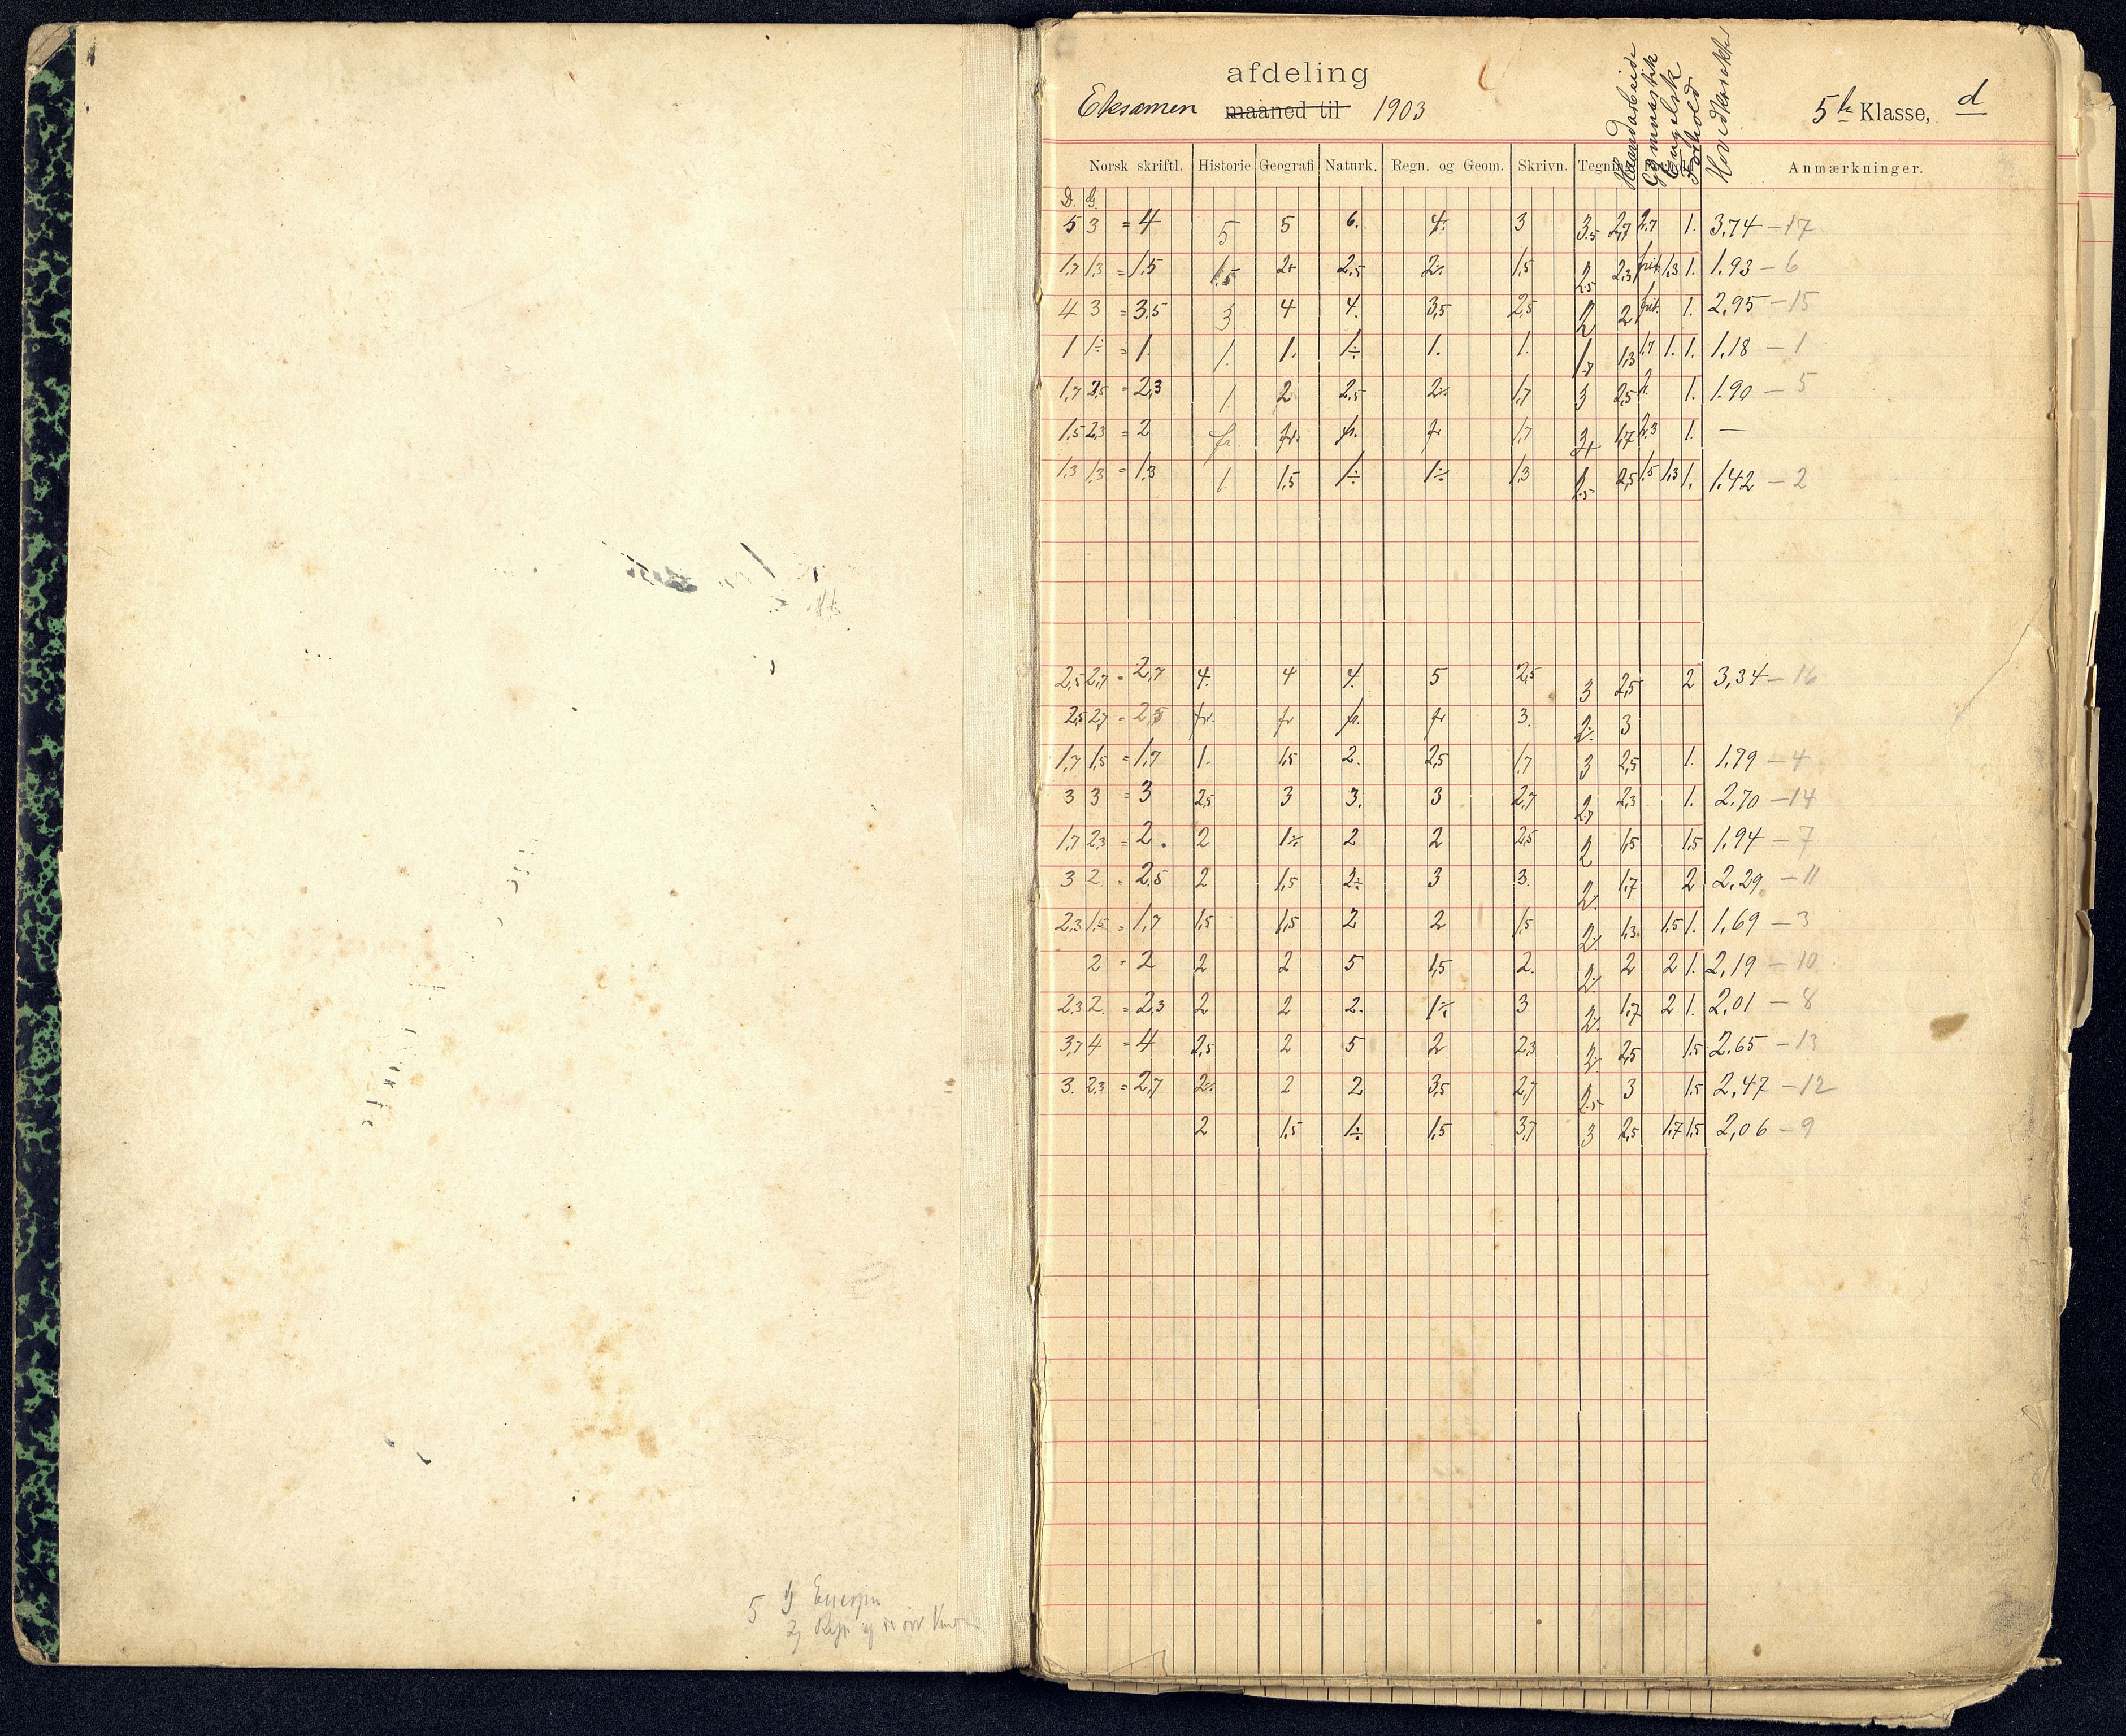 afdeling
Eksamen maaned til 1903 5te Klasse, d
Haandarbeide
Gymnastik
Engelsk
Forhold
Hovedkarakter
Norsk skriftl. Historie Geografi Naturk. Regn. og Geom. Skrivn. Tegning Anmærkninger.
D. G.
5 3 = 4 5 5 6. 4÷ 3 3.5 2,7 2,7 1. 3,74 – 17
1,7 1,3 = 1,5 1.5 2÷ 2,5 2÷ 1,5 2.5 2,3 frit 1,3 1. 1.93 – 6
4 3 = 3,5 3 4 4. 3,5 2,5 2 2 frit. 1. 2,95 – 15
1 1÷ = 1. 1. 1. 1÷ 1. 1. 1.7 1,3 1,7 1. 1. 1,18 – 1
1,7 2,5 = 2,3 1. 2 2,5 2÷ 1,7 3 2,5 1. 1.90 – 5
1,5 2,3 = 2 fr. fr. fr. fr 1,7 3÷ 1,7 2,3 1. –
1,3 1,3 = 1,3 1 1,5 1÷ 1÷ 1,3 1.5 2,5 1,5 1,3 1. 1.42 – 2
2,5 2,7 = 2,7 4. 4 4. 5 2,5 3 2,5 2 3,34 – 16
2,5 2,7 = 2,5 fr. fr fr. fr 3. 2÷ 3
1,7 1,5 = 1,7 1. 1,5 2. 2,5 1,7 3 2,5 1. 1.79 – 4
3 3 = 3 2,5 3 3. 3 2,7 2,7 2,3 1. 2.70 – 14
1,7 2,3 = 2. 2 1÷ 2 2 2,5 2 1,5 1,5 1.94 – 7
3 2 = 2,5 2 1,5 2÷ 3 3. 2. 1,7 2 2,29 – 11
2,3 1,5 = 1,7 1,5 1,5 2 2 1,5 2÷ 1,3 1,5 1. 1,69 – 3
2 = 2 2 2 5 1,5 2. 2÷ 2 2 1. 2,19 – 10
2,3 2 = 2,3 2 2 2. 1÷ 3 2÷ 1,7 2 1. 2,01 – 8
3,7 4 = 4 2,5 2 5 2 2,3 2÷ 2,5 1.5 2.65 – 13
3. 2,3 = 2,7 2÷ 2 2 3,5 2,7 2.5 3 1.5 2,47 – 12
2 1,5 1÷ 1,5 3,7 3 2,5 1,7 1,5 2,06 – 9
5 1) Europa
2)